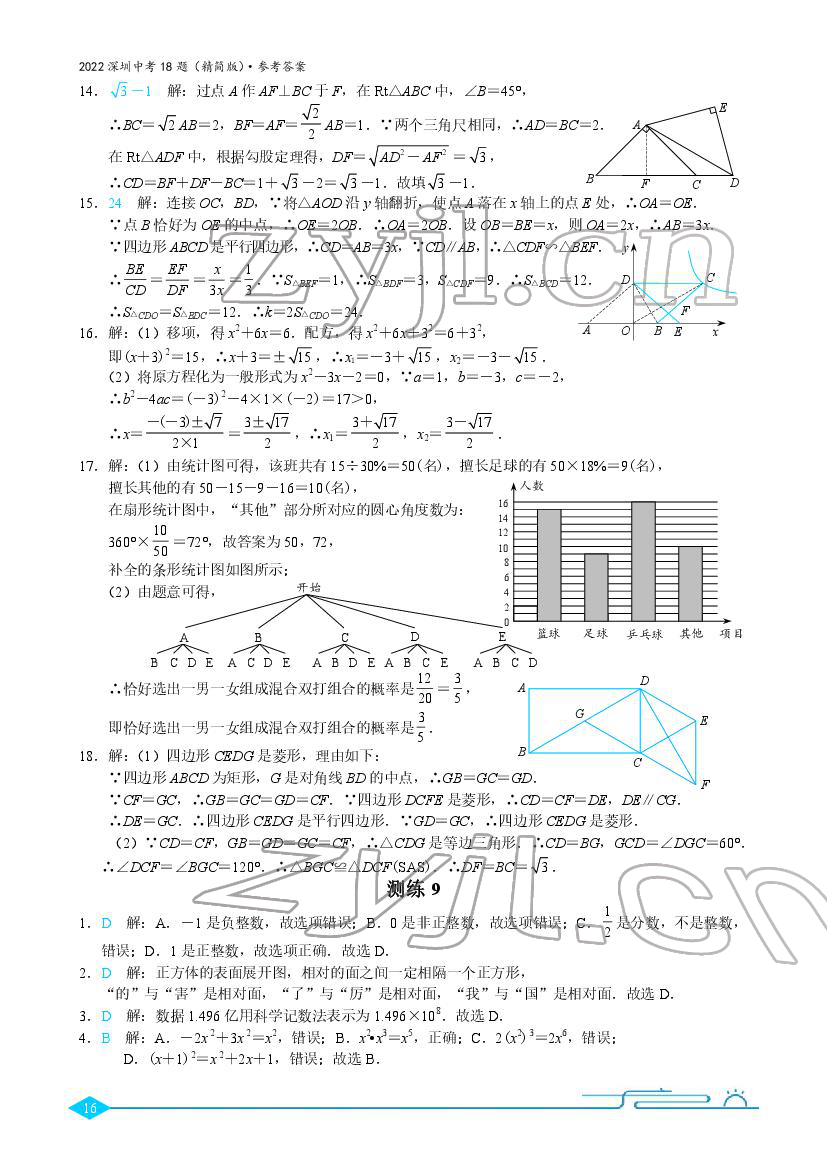 2022 深圳中考 18 题（精简版）· 参考答案
14. √3－1 解：过点 A 作 AF⊥BC 于 F，在 Rt△ABC 中，∠B＝45°，
∴BC＝√2 AB＝2，BF＝AF＝√2/2 AB＝1．∵两个三角尺相同，∴AD＝BC＝2．
在 Rt△ADF 中，根据勾股定理得，DF＝√(AD²－AF²)＝√3，
∴CD＝BF＋DF－BC＝1＋√3－2＝√3－1．故填√3－1．
A E B F C D
15. 24 解：连接 OC，BD，∵将△AOD 沿 y 轴翻折，使点 A 落在 x 轴上的点 E 处，∴OA＝OE．
∵点 B 恰好为 OE 的中点，∴OE＝2OB．∴OA＝2OB．设 OB＝BE＝x，则 OA＝2x，∴AB＝3x．
∵四边形 ABCD 是平行四边形，∴CD＝AB＝3x，∵CD∥AB，∴△CDF∽△BEF．
∴BE/CD＝EF/DF＝x/3x＝1/3．∵S△BEF＝1，∴S△BDF＝3，S△CDF＝9．∴S△BCD＝12．
∴S△CDO＝S△BDC＝12．∴k＝2S△CDO＝24．
y D C F A O B E x
16. 解：（1）移项，得 x²＋6x＝6．配方，得 x²＋6x＋3²＝6＋3²，
即(x＋3)²＝15，∴x＋3＝±√15，∴x₁＝－3＋√15，x₂＝－3－√15．
（2）将原方程化为一般形式为 x²－3x－2＝0，∵a＝1，b＝－3，c＝－2，
∴b²－4ac＝(－3)²－4×1×(－2)＝17＞0，
∴x＝(－(－3)±√7)/(2×1)＝(3±√17)/2，∴x₁＝(3＋√17)/2，x₂＝(3－√17)/2．
17. 解：（1）由统计图可得，该班共有 15÷30%＝50(名)，擅长足球的有 50×18%＝9(名)，
擅长其他的有 50－15－9－16＝10(名)，
在扇形统计图中，“其他”部分所对应的圆心角度数为：
360°×10/50＝72°，故答案为 50，72，
补全的条形统计图如图所示；
（2）由题意可得，
人数
16
14
12
10
8
6
4
2
0
篮球 足球 乒乓球 其他 项目
开始
A B C D E
B C D E A C D E A B D E A B C E A B C D
∴恰好选出一男一女组成混合双打组合的概率是12/20＝3/5，
即恰好选出一男一女组成混合双打组合的概率是3/5．
A D G E B C F
18. 解：（1）四边形 CEDG 是菱形，理由如下：
∵四边形 ABCD 为矩形，G 是对角线 BD 的中点，∴GB＝GC＝GD．
∵CF＝GC，∴GB＝GC＝GD＝CF．∵四边形 DCFE 是菱形，∴CD＝CF＝DE，DE∥CG．
∴DE＝GC．∴四边形 CEDG 是平行四边形．∵GD＝GC，∴四边形 CEDG 是菱形．
（2）∵CD＝CF，GB＝GD＝GC＝CF，∴△CDG 是等边三角形．∴CD＝BG，GCD＝∠DGC＝60°．
∴∠DCF＝∠BGC＝120°．∴△BGC≌△DCF(SAS)．∴DF＝BC＝√3．
测练 9
1. D 解：A．－1 是负整数，故选项错误；B．0 是非正整数，故选项错误；C．1/2 是分数，不是整数，
错误；D．1 是正整数，故选项正确．故选 D．
2. D 解：正方体的表面展开图，相对的面之间一定相隔一个正方形，
“的”与“害”是相对面，“了”与“厉”是相对面，“我”与“国”是相对面．故选 D．
3. D 解：数据 1.496 亿用科学记数法表示为 1.496×10⁸．故选 D．
4. B 解：A．－2x²＋3x²＝x²，错误；B．x²•x³＝x⁵，正确；C．2(x²)³＝2x⁶，错误；
D．(x＋1)²＝x²＋2x＋1，错误；故选 B．
16
zyjl.cn
zyjl.cn